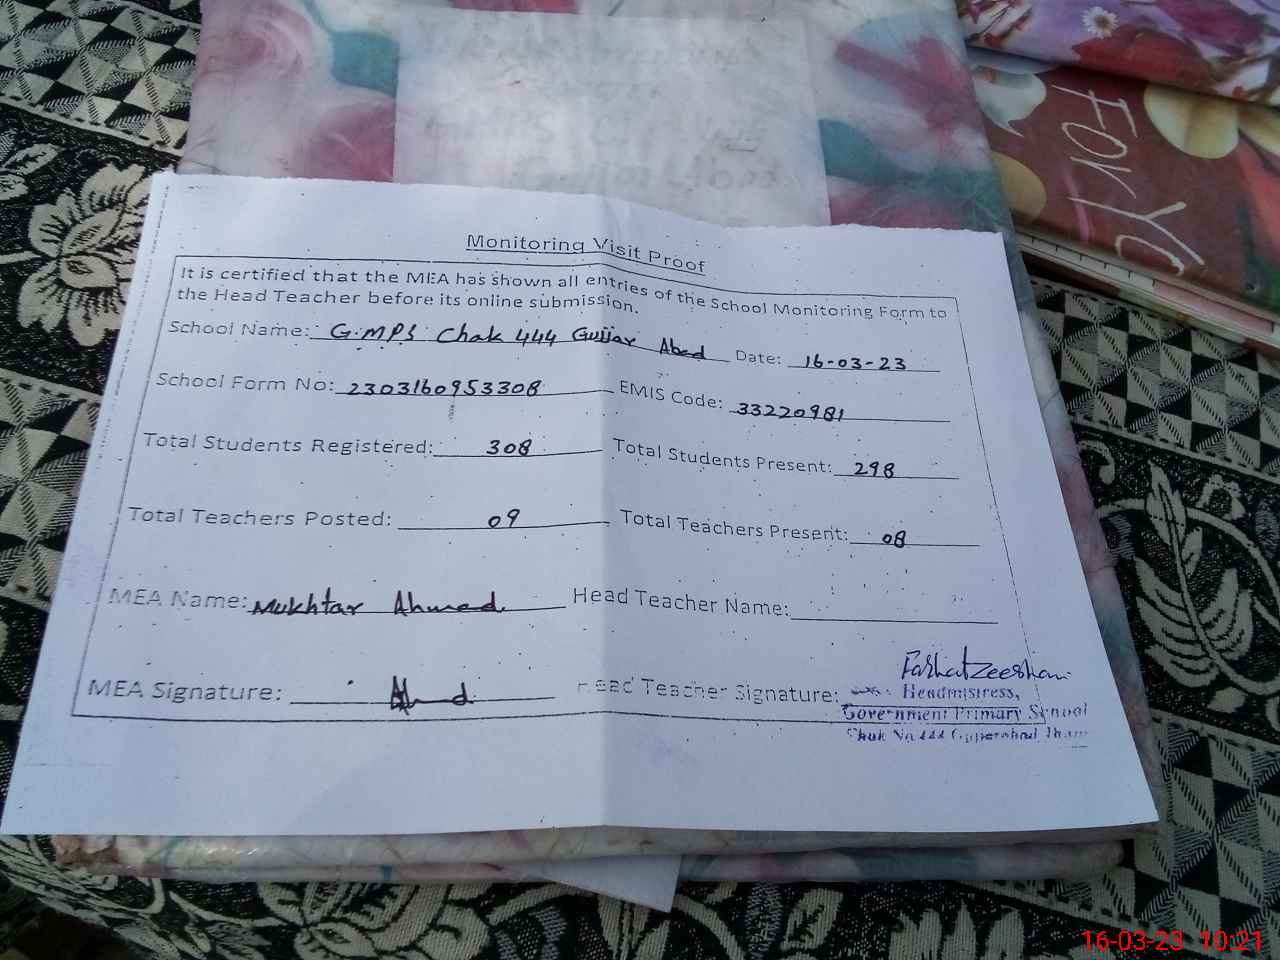 FOR YO
Monitoring Visit Proof
It is certified that the MEA has shown all entries of the School Monitoring Form to
the Head Teacher before its online submission.
School Name: G.MPS Chak 444 Gujjar Abad Date: 16-03-23
School Form No: 2303160953308 EMIS Code: 33220981
Total Students Registered: 308 Total Students Present: 298
Total Teachers Posted: 09 Total Teachers Present: 08
MEA Name: Mukhtar Ahmed Head Teacher Name:
Farhatzeeshan
MEA Signature: Ahmd Head Teacher Signature: Headmistress,
Government Primary School
Chak No 444
16-03-23 10:21